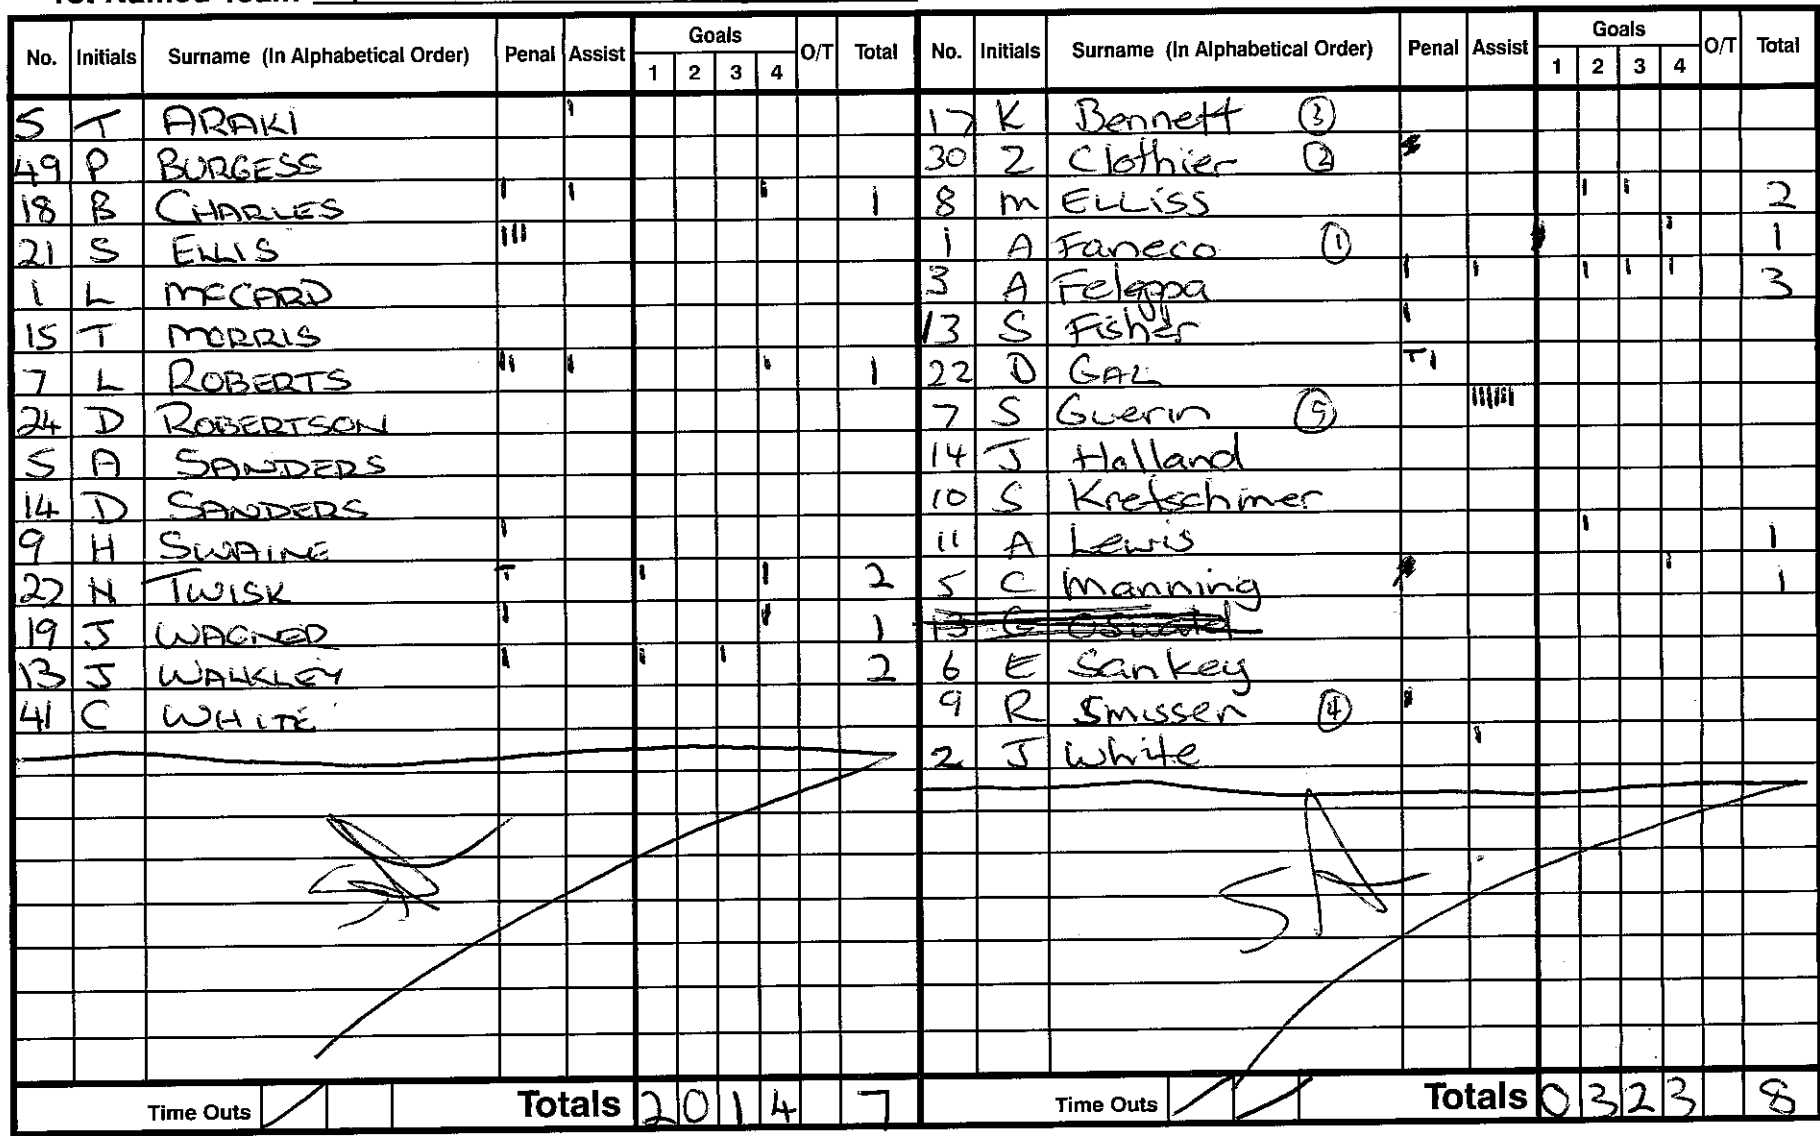 No. Initials Surname (In Alphabetical Order) Penal Assist Goals 1 2 3 4 O/T Total
5 T ARAKI
49 P BURGESS
18 B CHARLES 1
21 S ELLIS
1 L MCCARD
15 T MORRIS
7 L ROBERTS 1
24 D ROBERTSON
5 A SANDERS
14 D SANDERS
9 H SWAINE
22 N TWISK T 2
19 J WAGNER 1
13 J WALKLEY 2
41 C WHITE
Time Outs Totals 2 0 1 4 7
No. Initials Surname (In Alphabetical Order) Penal Assist Goals 1 2 3 4 O/T Total
17 K Bennett 3
30 Z Clothier 2
8 M ELLISS 2
1 A Faneco 1 1
3 A Feleppa 3
13 S Fisher
22 D GAL T
7 S Guerin 5
14 J Holland
10 S Kretschmer
11 A Lewis 1
5 C Manning 1
6 E Sankey
9 R Smissen 4
2 J White
Time Outs Totals 0 3 2 3 8